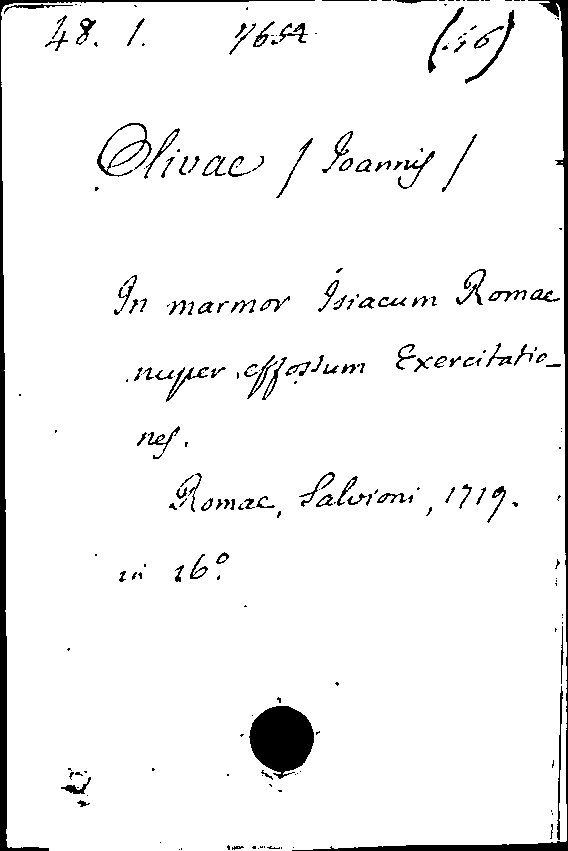 48. 1. 7652 (56)
Olivae / Joannis /
In marmor Isiacum Romae
nuper effossum Exercitatio-
nes.
Romae, Salvioni, 1719.
in 16º.